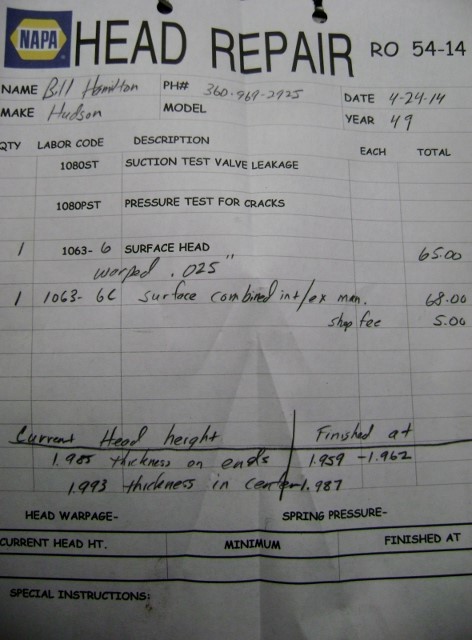 NAPA
HEAD REPAIR RO 54-14
NAME Bill Hamilton PH# 360-969-2925 DATE 4-24-14
MAKE Hudson MODEL YEAR 49
QTY LABOR CODE DESCRIPTION EACH TOTAL
1080ST SUCTION TEST VALVE LEAKAGE
1080PST PRESSURE TEST FOR CRACKS
1 1063-6 SURFACE HEAD 65.00
warped .025"
1 1063-6C surface combined int/ex man. 68.00
shop fee 5.00
Current Head height Finished at
1.985 thickness on ends 1.959 -1.962
1.993 thickness in center 1.987
HEAD WARPAGE- SPRING PRESSURE-
CURRENT HEAD HT. MINIMUM FINISHED AT
SPECIAL INSTRUCTIONS: